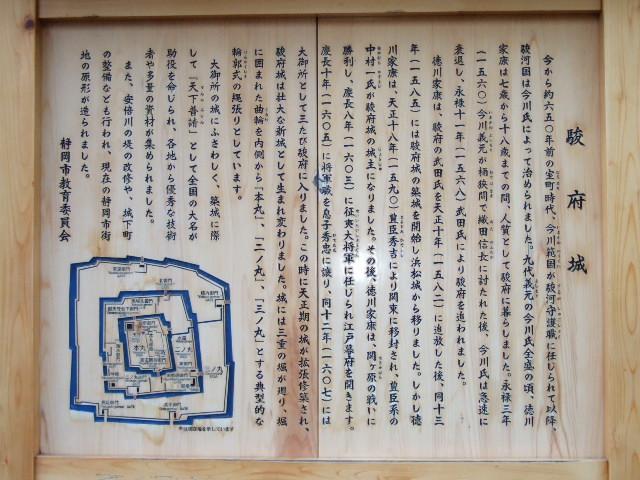 駿府城
今から約六五〇年前の室町時代、今川範国が駿河守護職に任じられて以降、
駿河国は今川氏によって治められました。九代義元の今川氏全盛の頃、徳川
家康は七歳から十八歳までの間、人質として駿府に暮らしました。永禄三年
(一五六〇)今川義元が桶狭間で織田信長に討たれた後、今川氏は急速に
衰退し、永禄十一年(一五六八)武田氏により駿府を追われました。
徳川家康は、駿府の武田氏を天正十年(一五八二)に追放した後、同十三
年(一五八五)には駿府城の築城を開始し浜松城から移りました。しかし徳
川家康は、天正十八年(一五九〇)豊臣秀吉により関東に移封され、豊臣系の
中村一氏が駿府城の城主になりました。その後、徳川家康は、関ヶ原の戦いに
勝利し、慶長八年(一六〇三)に征夷大将軍に任じられ江戸幕府を開きます。
慶長十年(一六〇五)に将軍職を息子秀忠に譲り、同十二年(一六〇七)には
大御所として三たび駿府に入りました。この時に天正期の城が拡張修築され、
駿府城は壮大な新城として生まれ変わりました。城には三重の堀が廻り、堀
に囲まれた曲輪を内側から「本丸」、「二ノ丸」、「三ノ丸」とする典型的な
輪郭式の縄張りとしています。
大御所の城にふさわしく、築城に際
して『天下普請』として全国の大名が
助役を命じられ、各地から優秀な技術
者や多量の資材が集められました。
また、安倍川の堤の改修や、城下町
の整備なども行われ、現在の静岡市街
地の原形が造られました。
静岡市教育委員会
本丸
二ノ丸
三ノ丸